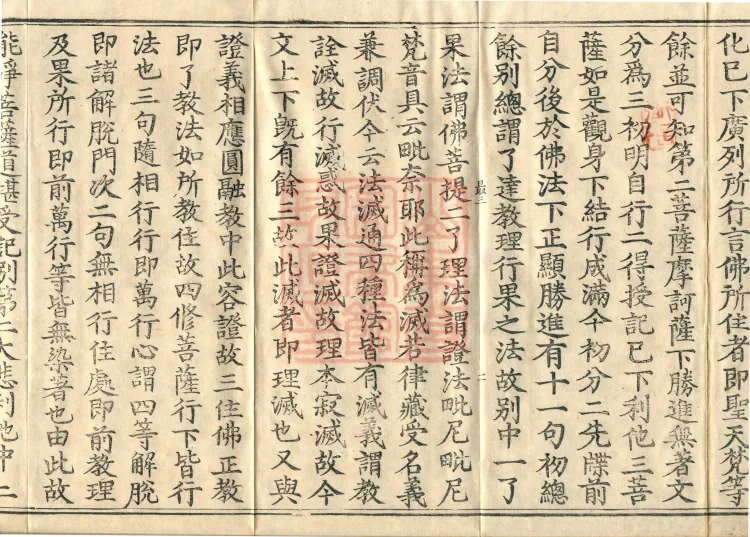 化已下廣列所行言佛所住者即聖天梵等
餘並可知第二菩薩摩訶薩下勝進無著文
分爲三初明自行二得授記已下利他三菩
薩如是觀身下結行咸滿今初分二先牒前
自分後於佛法下正顯勝進有十一句初總
餘別總謂了達教理行果之法故別中一了
果法謂佛菩提二了理法謂證法毗尼毗尼
最三
二
梵音具云毗奈耶此稱爲滅若律藏受名義
兼調伏今云法滅通四種法皆有滅義謂教
詮滅故行滅惑故果證滅故理本寂滅故今
文上下旣有餘三故此滅者即理滅也又與
證義相應圓融教中此容證故三住佛正教
即了教法如所教住故四修菩薩行下皆行
法也三句隨相行行即萬行心謂四等解脫
即諸解脫門次二句無相行住處即前教理
及果所行即前萬行等皆無染著也由此故
能淨菩薩道堪受記別第二大悲利他中二